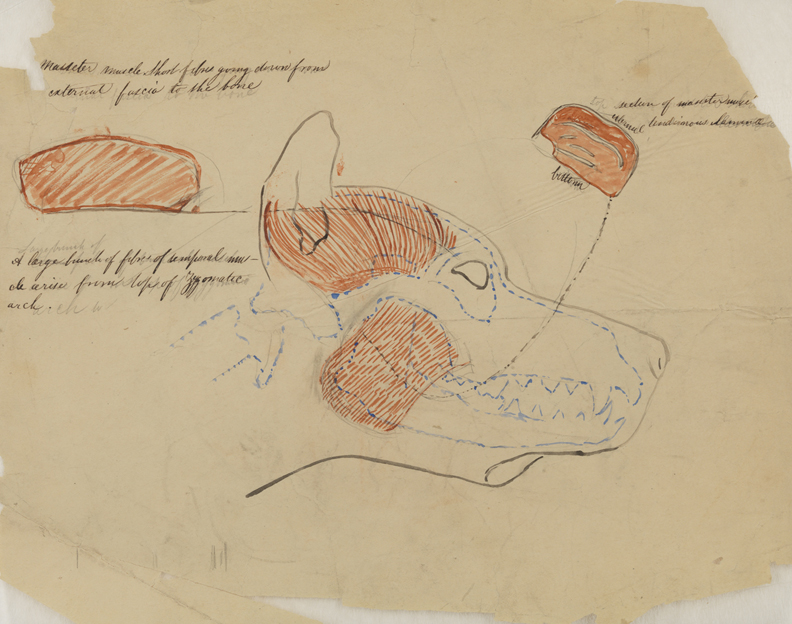 Masseter muscle. Short fibres going down from
external fascia to the bone
section of masseter
internal tendinous
bottom
A large bunch of fibres of temporal mus-
cle arise from top of Zygomatic
arch.